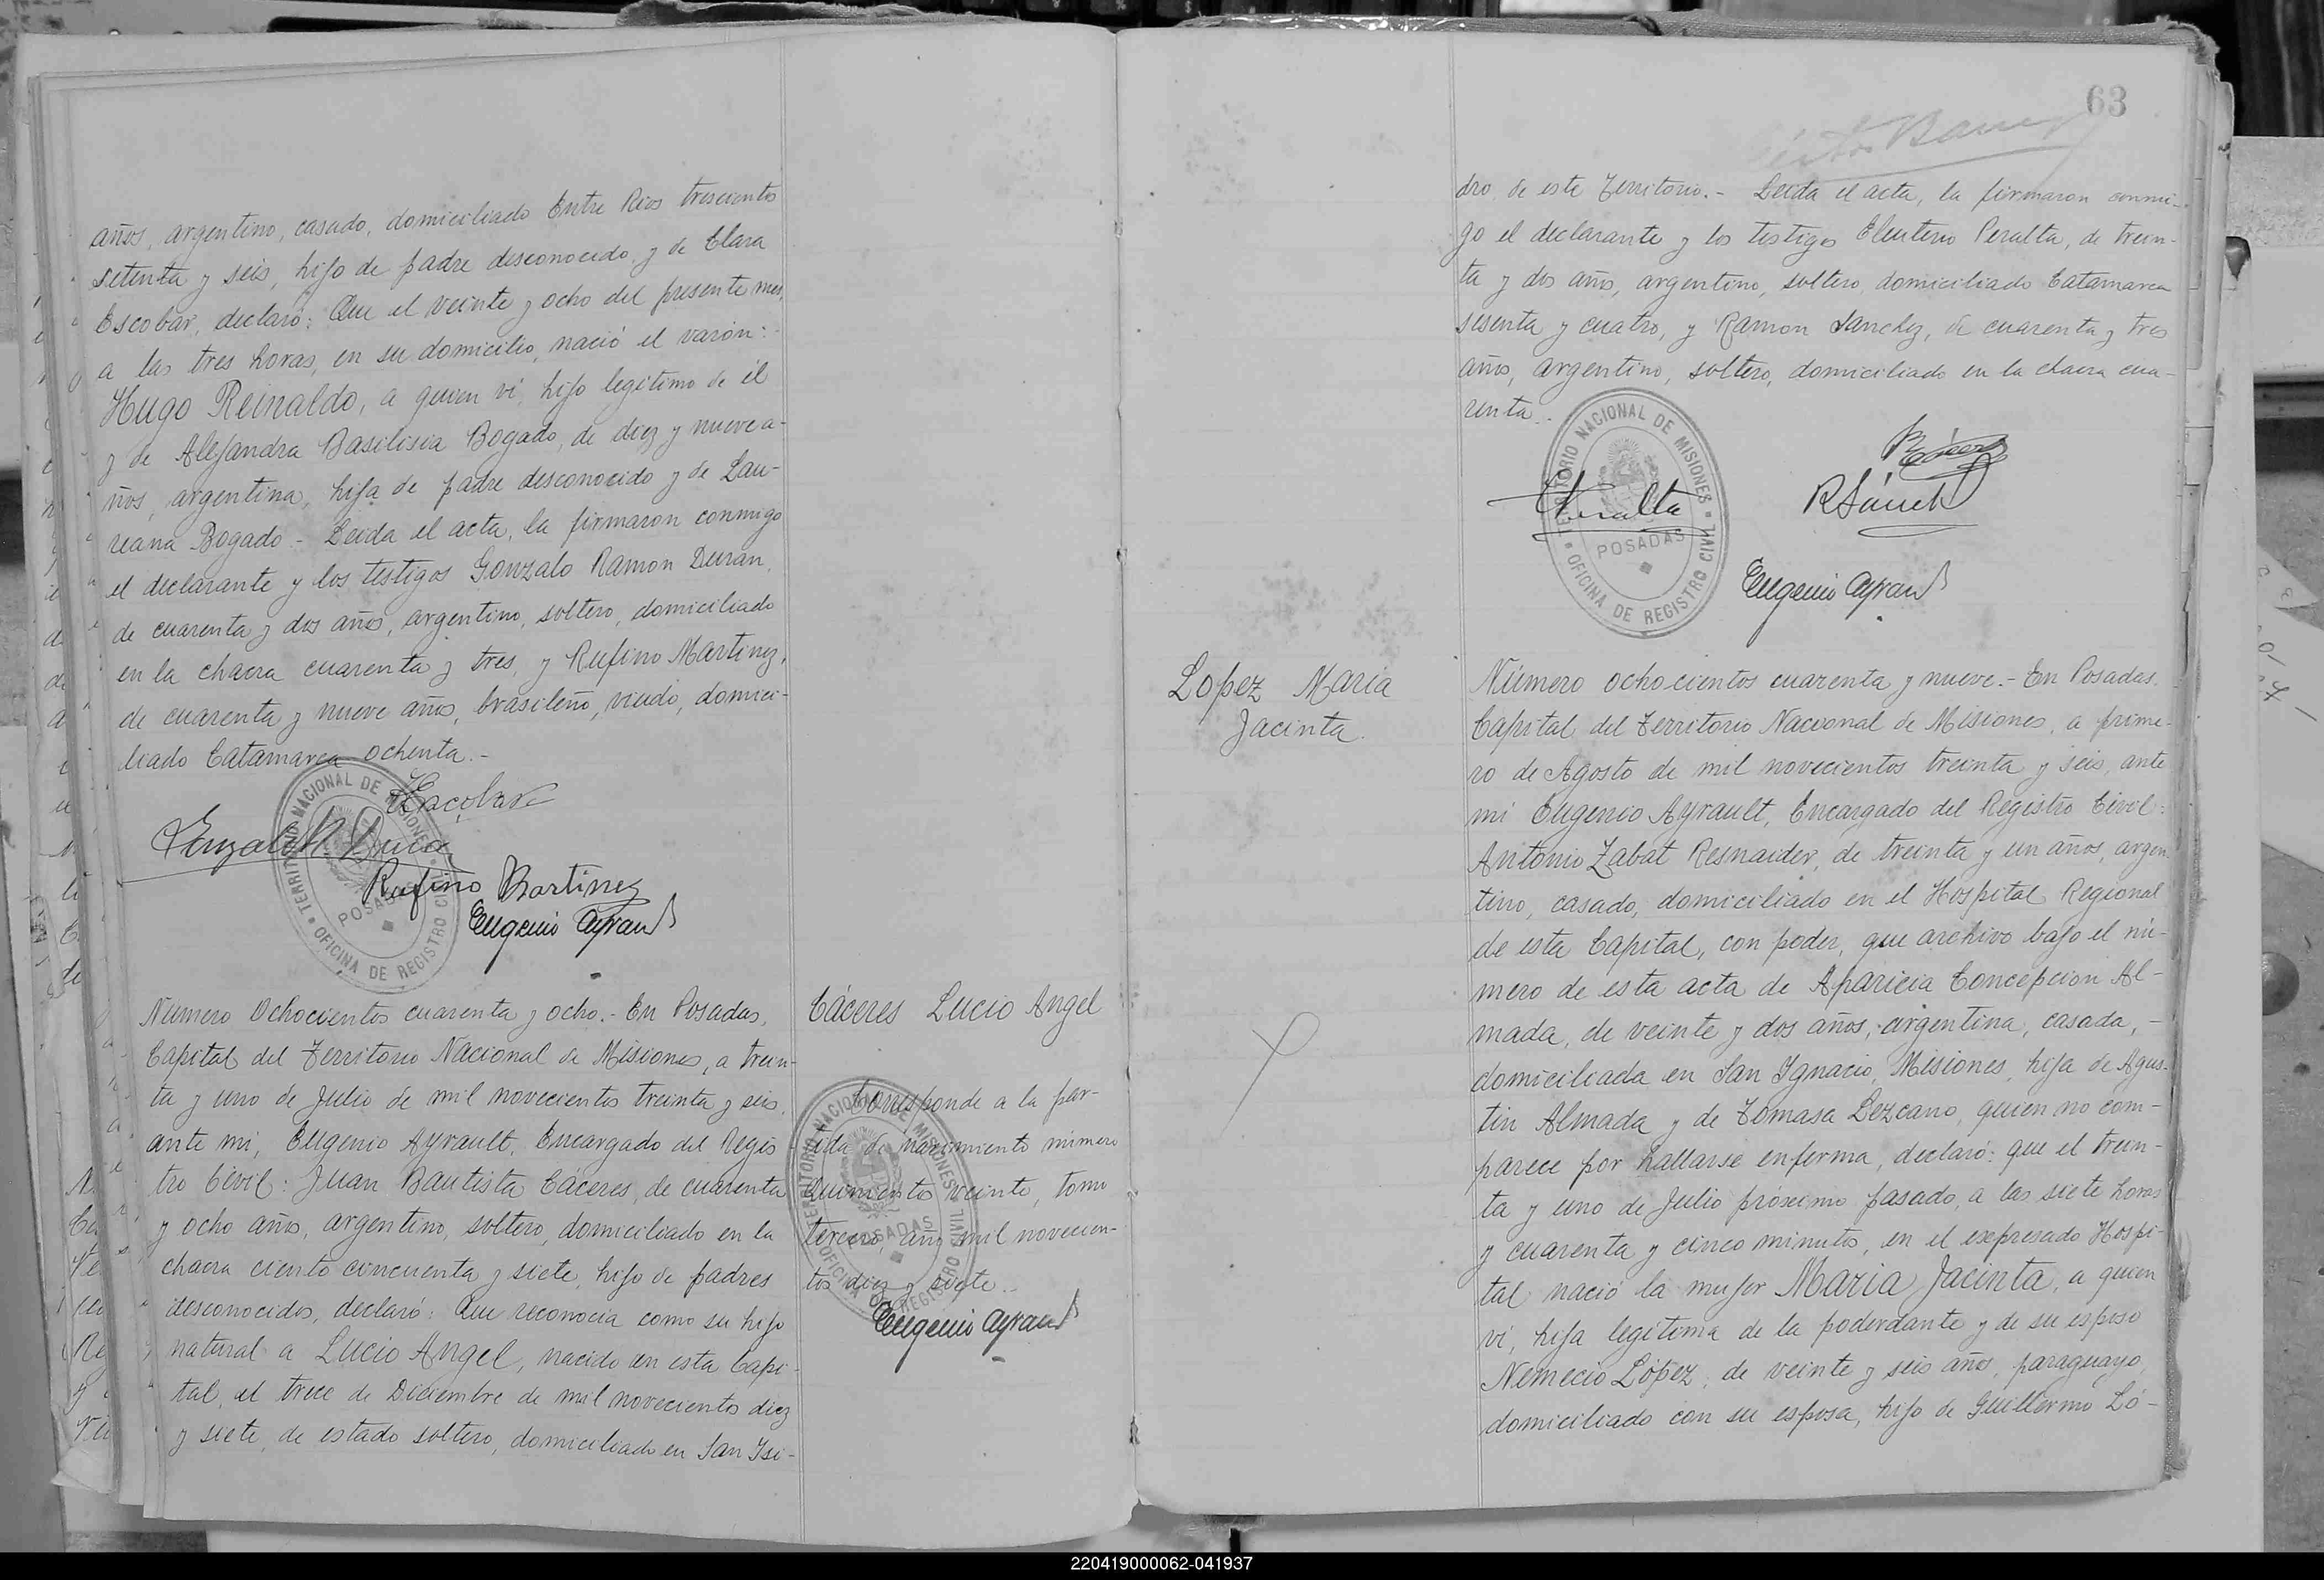 años, argentino, casado, domiciliado Entre Rios trescientos
setenta y seis, hijo de padre desconocido y de Clara
Escobar, declaró: Que el veinte y ocho del presente mes,
a las tres horas, en su domicilio, nació el varón:
Hugo Reinaldo, a quien vi, hijo legitimo de él
y de Alejandra Basilisia Bogado, de diez y nueve a-
ños, argentina, hija de padre desconocido y de Lau-
reana Bogado.- Leida el acta, la firmaron conmigo
el declarante y los testigos Gonzalo Ramon Duran,
de cuarenta y dos años, argentino, soltero, domiciliado
en la chacra cuarenta y tres, y Rufino Martinez,
de cuarenta y nueve años, brasileño, viudo, domici-
liado Catamarca ochenta.-
Escobar
Gonzalo R. Duran
Rufino Martinez
Eugenio Ayrault
TERRITORIO NACIONAL DE MISIONES
POSADAS
OFICINA DE REGISTRO CIVIL
Número Ochocientos cuarenta y ocho.- En Posadas,
Capital del Territorio Nacional de Misiones, a trein-
ta y uno de Julio de mil novecientos treinta y seis,
ante mi, Eugenio Ayrault, Encargado del Regis-
tro Civil: Juan Bautista Cáceres, de cuarenta
y ocho años, argentino, soltero, domiciliado en la
chacra ciento cincuenta y siete, hijo de padres
desconocidos, declaró: Que reconocia como su hijo
natural a Lucio Angel, nacido en esta Capi-
tal, el trece de Diciembre de mil novecientos diez
y siete, de estado soltero, domiciliado en San Isi-
Cáceres Lucio Angel
Corresponde a la par-
tida de nacimiento número
Quinientos veinte, tomo
tercero, año mil novecien-
tos diez y siete.-
Eugenio Ayrault
TERRITORIO NACIONAL DE MISIONES
POSADAS
OFICINA DE REGISTRO CIVIL
63
dro de este Territorio.- Leida el acta, la firmaron conmi-
go el declarante y los testigos Eleuterio Peralta, de trein-
ta y dos años, argentino, soltero, domiciliado Catamarca
sesenta y cuatro, y Ramon Sanchez, de cuarenta y tres
años, argentino, soltero, domiciliado en la chacra cua-
renta.-
TERRITORIO NACIONAL DE MISIONES
POSADAS
OFICINA DE REGISTRO CIVIL
Peralta
Eugenio Ayrault
Lopez Maria
Jacinta.
Número ochocientos cuarenta y nueve.- En Posadas,
Capital del Territorio Nacional de Misiones, a prime-
ro de Agosto de mil novecientos treinta y seis, ante
mi Eugenio Ayrault, Encargado del Registro Civil:
Antonio Zabat Resnaider, de treinta y un años, argen-
tino, casado, domiciliado en el Hospital Regional
de esta Capital, con poder, que archivo bajo el nú-
mero de esta acta de Aparicia Concepcion Al-
mada, de veinte y dos años, argentina, casada,-
domiciliada en San Ignacio, Misiones, hija de Agus-
tin Almada y de Tomasa Lezcano, quien no com-
parece por hallarse enferma, declaró: que el trein-
ta y uno de Julio proximo pasado, a las siete horas
y cuarenta y cinco minutos, en el expresado Hospi-
tal nació la mujer Maria Jacinta, a quien
vi, hija legitima de la poderdante y de su esposo
Nemecio López, de veinte y seis años, paraguayo,
domiciliado con su esposa, hijo de Guillermo Ló-
220419000062-041937